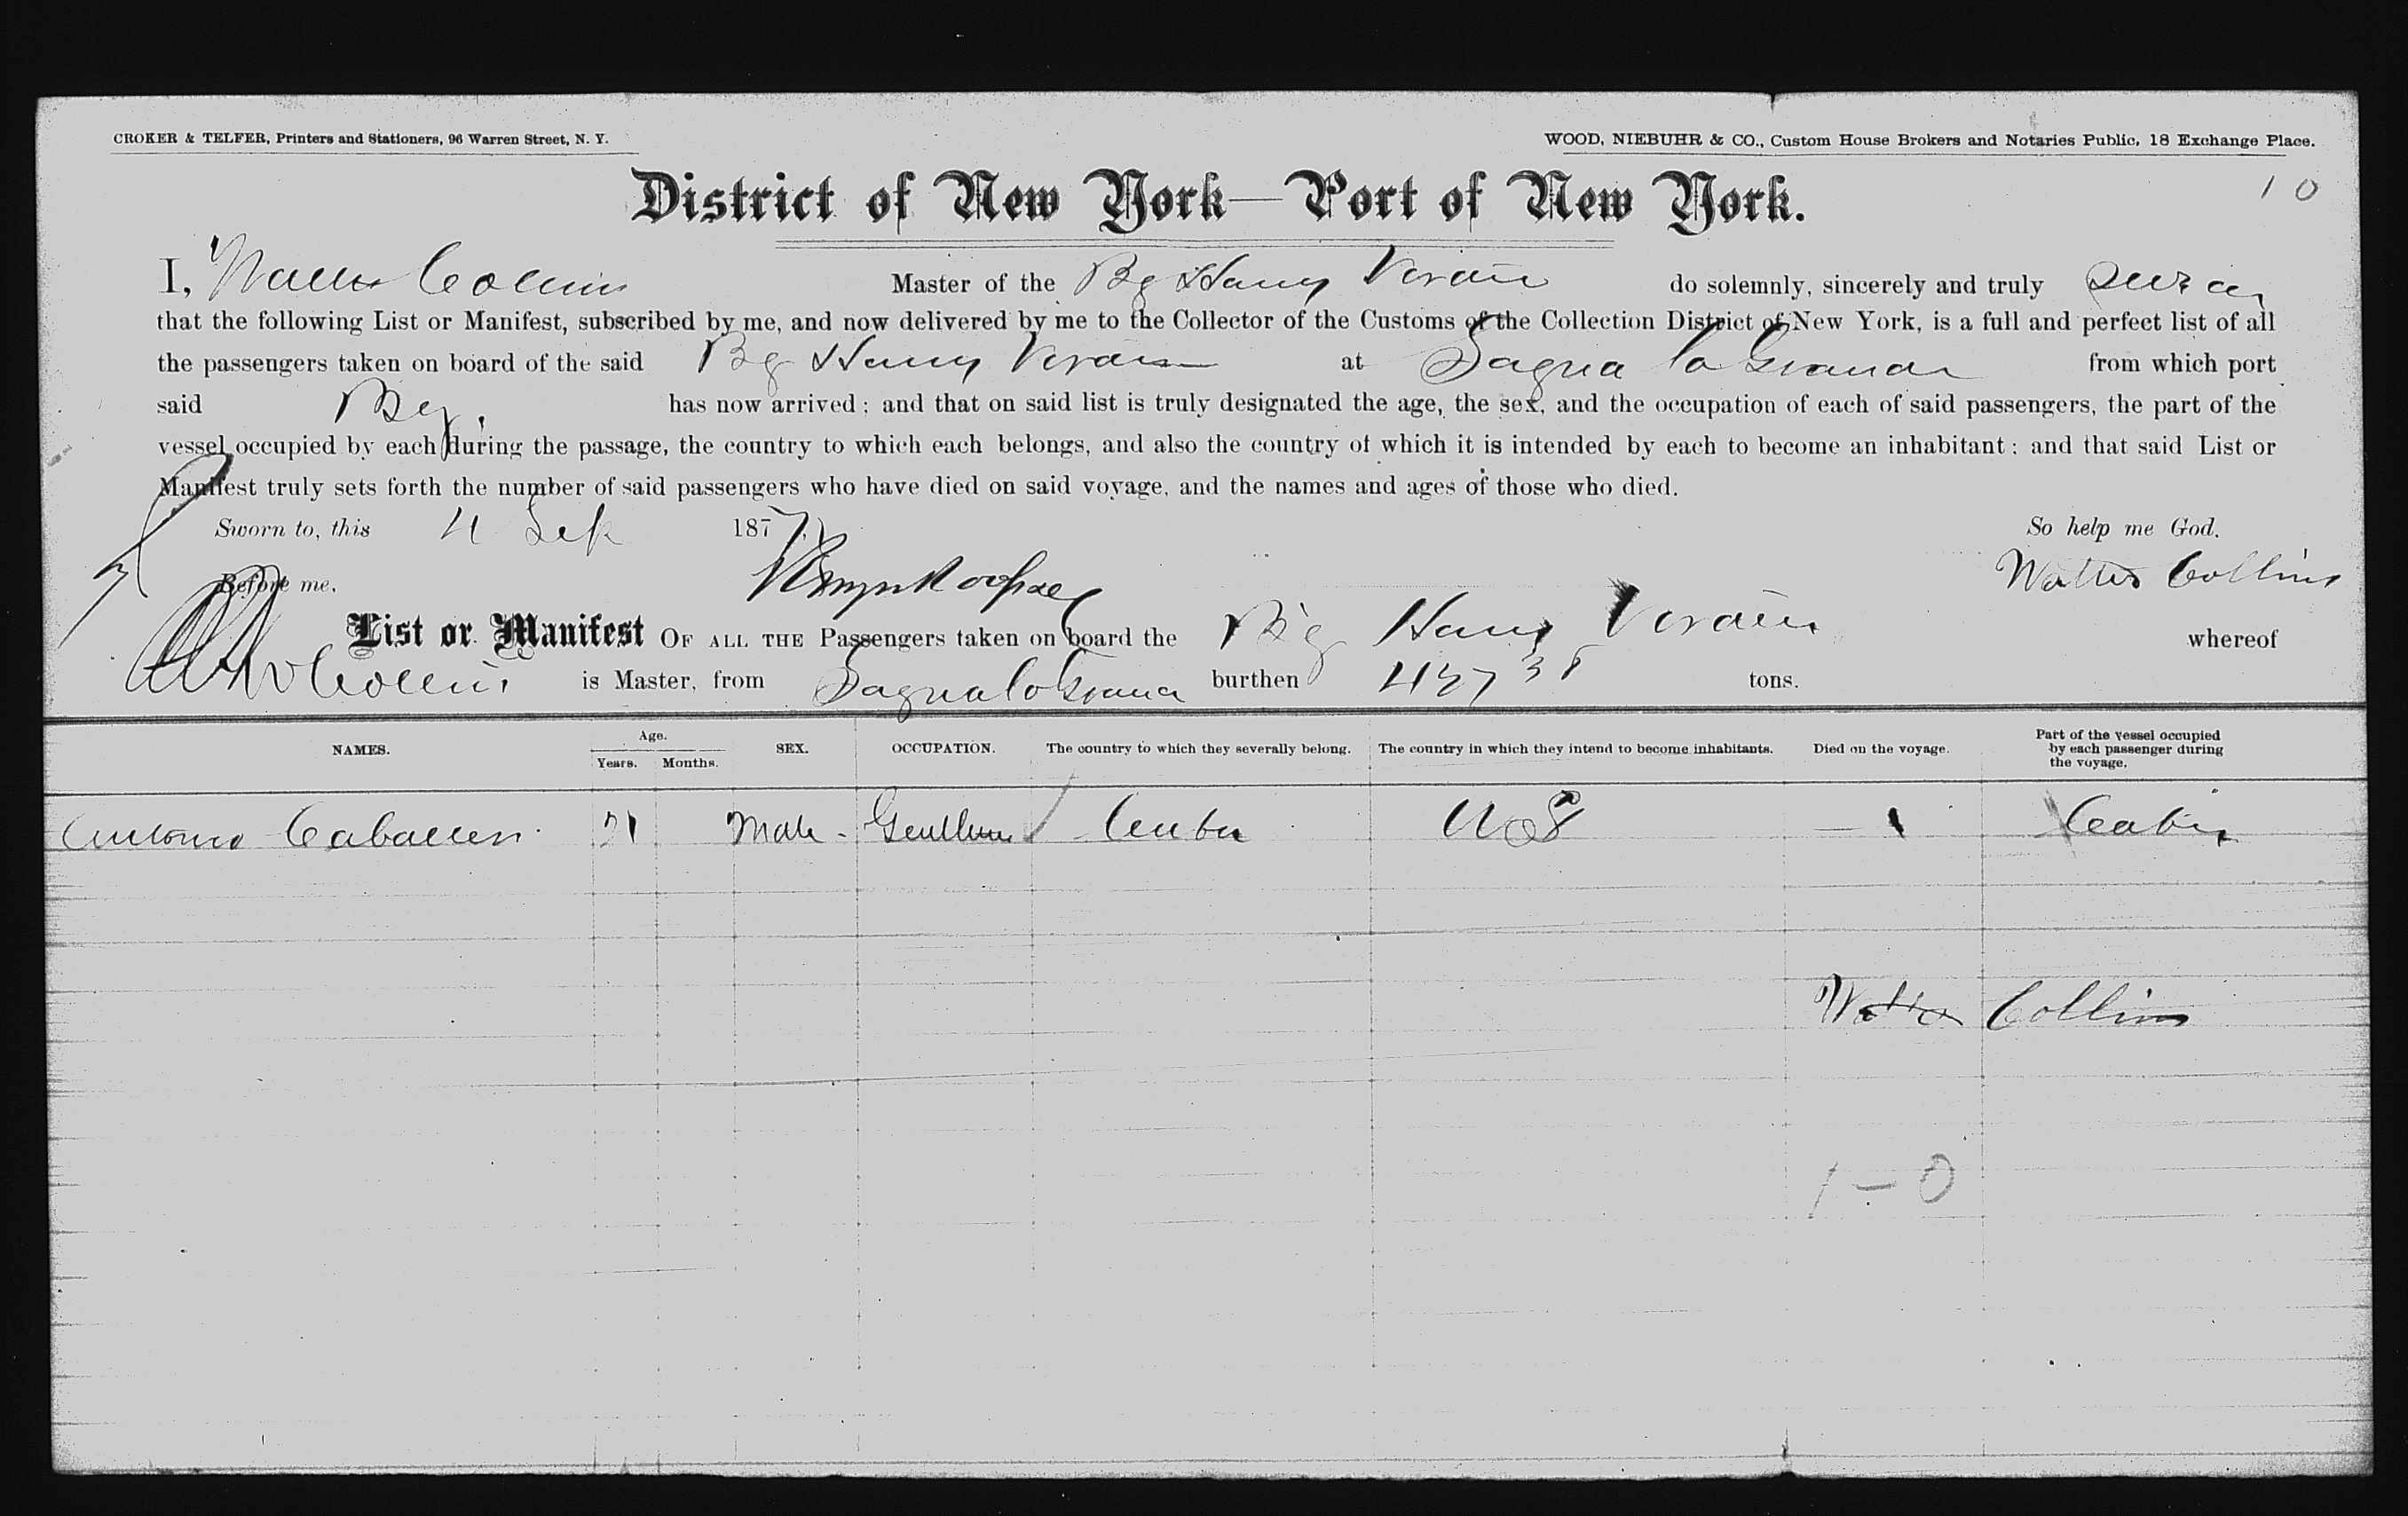 CROKER & TELFER, Printers and Stationers, 96 Warren Street, N. Y. WOOD, NIEBUHR & CO., Custom House Brokers and Notaries Public, 18 Exchange Place.
District of New York—Port of New York.
1 0
I, Walter Collins Master of the Bg Harry do solemnly, sincerely and truly swear
that the following List or Manifest, subscribed by me, and now delivered by me to the Collector of the Customs of the Collection District of New York, is a full and perfect list of all
the passengers taken on board of the said Bg Harry at Sagua la Grande from which port
said Bg. has now arrived; and that on said list is truly designated the age, the sex, and the occupation of each of said passengers, the part of the
vessel occupied by each during the passage, the country to which each belongs, and also the country of which it is intended by each to become an inhabitant; and that said List or
Manifest truly sets forth the number of said passengers who have died on said voyage, and the names and ages of those who died.
Sworn to, this 4 Sep 1877 So help me God.
Before me. Walter Collins
List or Manifest OF ALL THE Passengers taken on board the Bg Harry whereof
Collins is Master, from Sagua la Grande burthen 437 38 tons.
NAMES. Age. Years. Months. SEX. OCCUPATION. The country to which they severally belong. The country in which they intend to become inhabitants. Died on the voyage. Part of the vessel occupied by each passenger during the voyage.
Antonio Caballero 21 Male - Gentleman Cuba U S — Cabin
Walter Collins
1 - 0